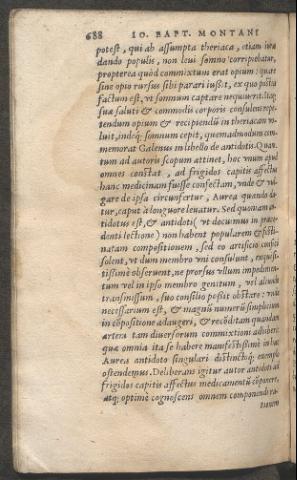 688 IO. BAPT. MONTANI
potest, qui ab assumpta theriaca, etiam inter
dando populis, non leui somno corripiebatur,
propterea quòd commixtum erat opium: quare
sine opio rursus sibi parari iussit, ex quo postea
factum est, vt somnum capere nequiuerit. Itaq;
suæ saluti & commodis corporis consulens repe-
tendum opium & recipiendũ in theriacam vo-
luit, indeq; somnum cepit, quemadmodum com-
memorat Galenus in libello de antidotis. Quan-
tum ad autoris scopum attinet, hoc vnum apud
omnes constat, ad frigidos capitis affectus
hanc medicinam fuisse confectam, vnde & vul-
gare de ipsa circunfertur, Aurea quando da-
tur, caput à languore leuatur. Sed quoniam an-
tidotus est, & antidoti (vt docuimus in præce-
denti lectione) non habent popularem & pósti-
natam compositionem, sed eo artificio confici
solent, vt dum membro vni consulunt, exquisi-
tissimè obseruent, ne prorsus vllum impedimen-
tum vel in ipso membro genitum, vel aliunde
transmissum, suo consilio possit obstare: vnde
necessarium est, & magnũ numerũ simplicium
in cõpositione adaugeri, & recõditam quandam
artem tam diuersorum commixtioni adhiberi:
quæ omnia ita se habere manifestissimè in hac
Aurea antidoto singulari distinctoq; exemplo
ostendemus. Deliberans igitur autor antidoti ad
frigidos capitis affectus medicamentũ cõponere,
atq; optimè cognoscens omnem componendi ra-
tionem